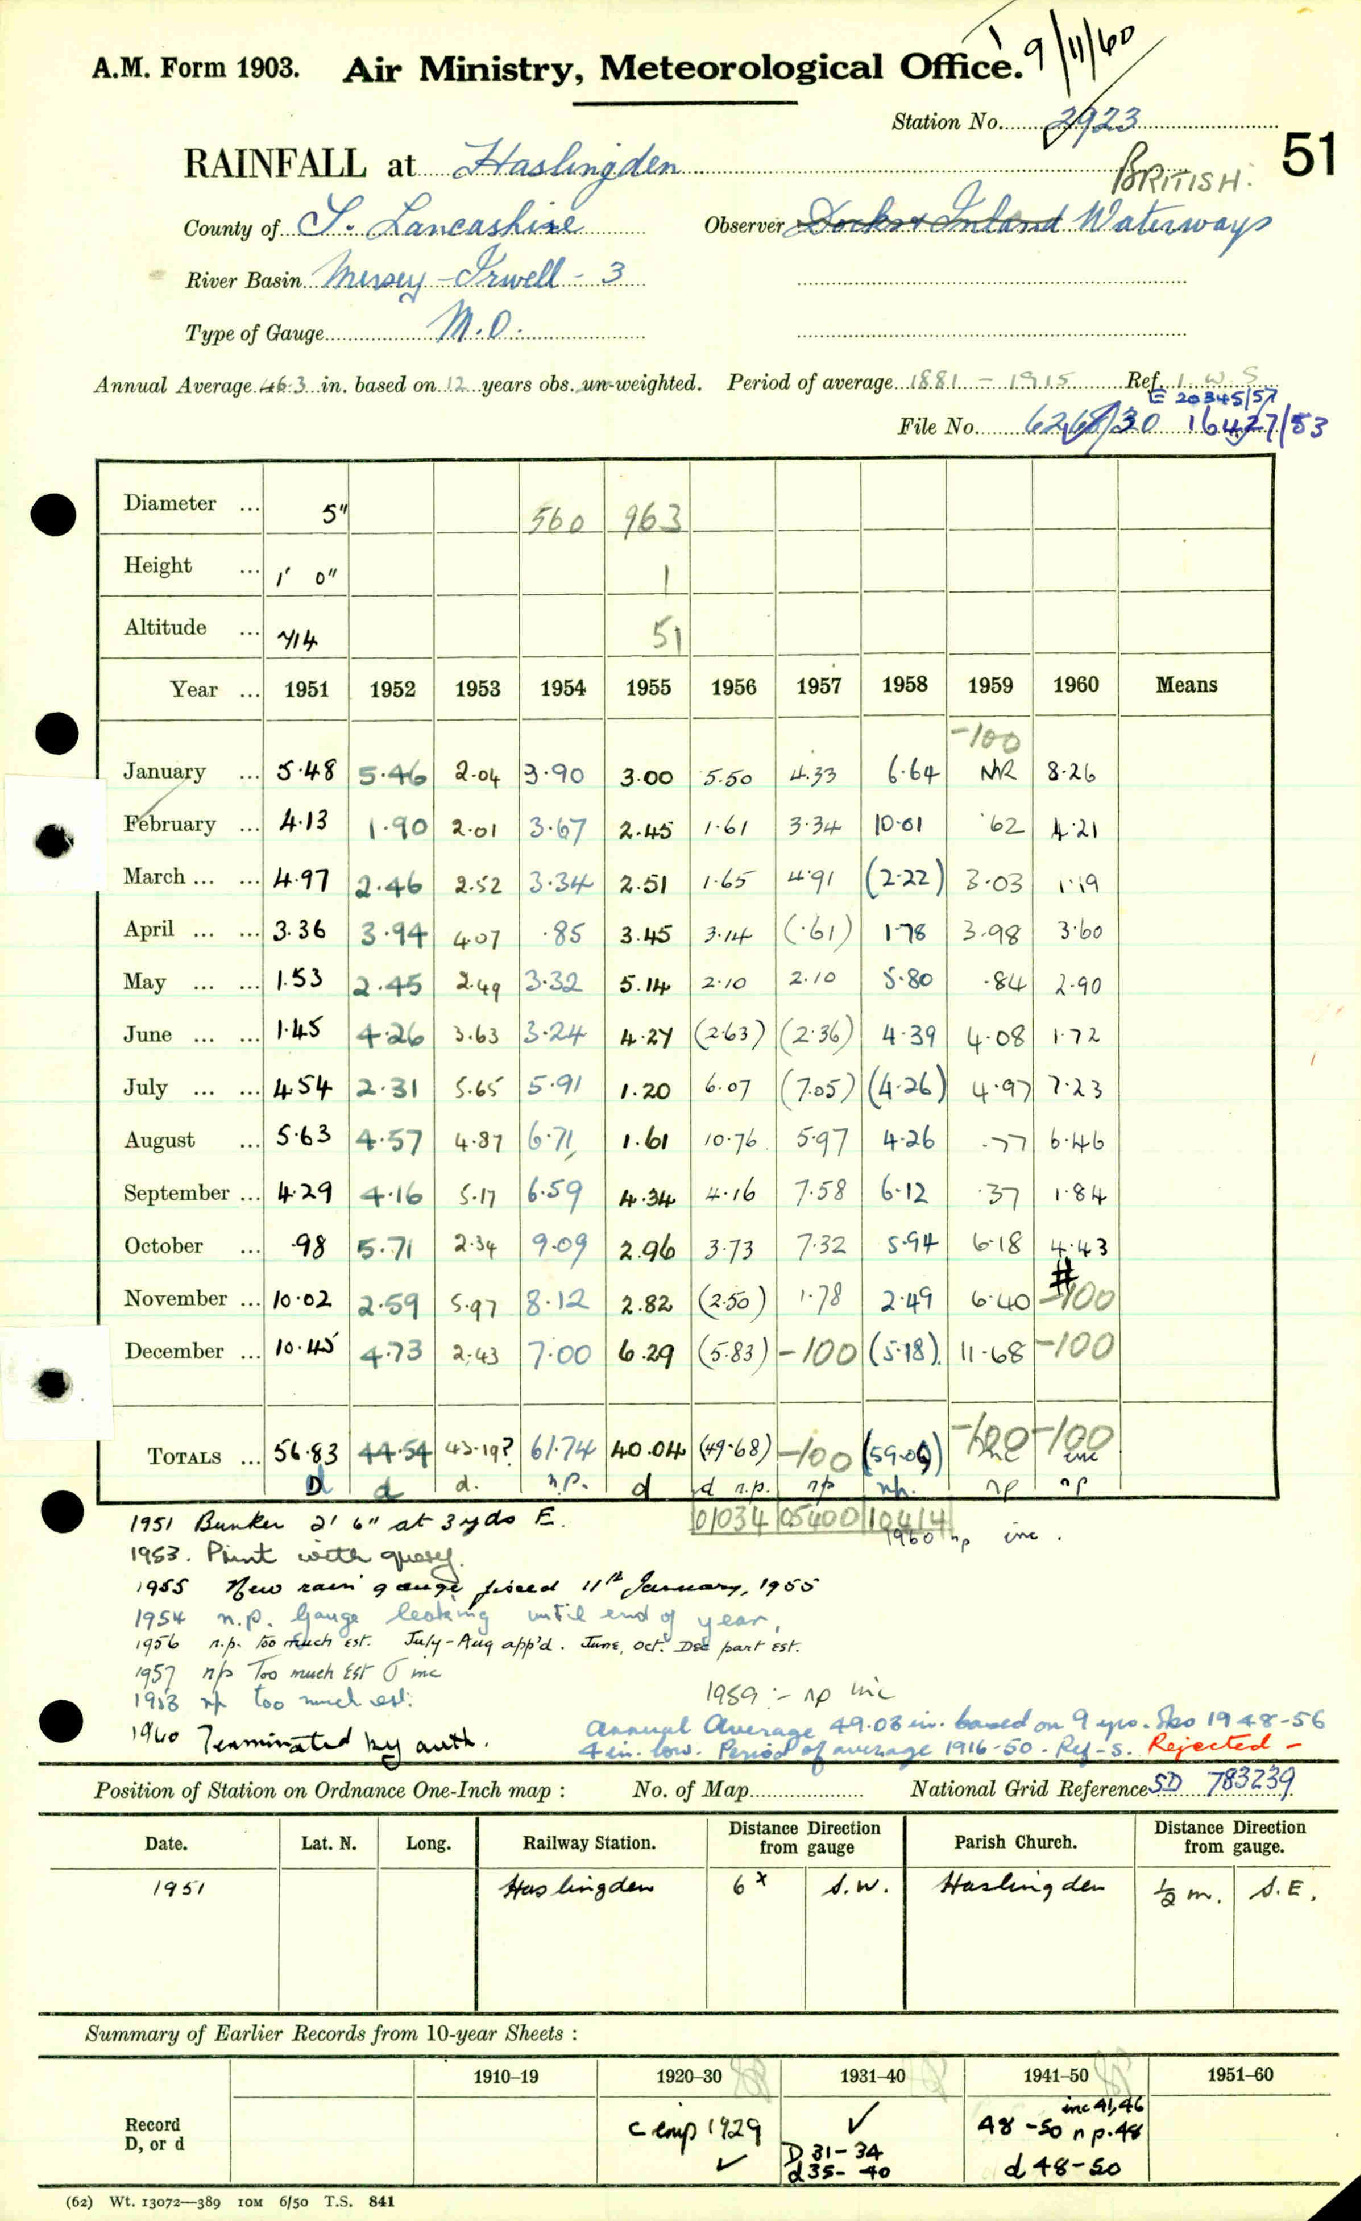 9/11/60
A.M. Form 1903. Air Ministry, Meteorological Office.
Station No. 2923
51
RAINFALL at Haslingden
BRITISH.
County of S. Lancashire Observer Docks & Inland Waterways
River Basin Mersey - Irwell - 3
Type of Gauge M.O.
Annual Average 46.3 in. based on 12 years obs. un-weighted. Period of average 1881 - 1915 Ref. I. W. S
E 20345/57
File No. 6268/30 16427/53
Diameter ... 5" 560 963
Height ... 1' 0" 1
Altitude ... 714 51
Year ... 1951 1952 1953 1954 1955 1956 1957 1958 1959 1960 Means
-100
January ... 5.48 5.46 2.04 3.90 3.00 5.50 4.33 6.64 NR 8.26
February ... 4.13 1.90 2.01 3.67 2.45 1.61 3.34 10.01 .62 4.21
March ... ... 4.97 2.46 2.52 3.34 2.51 1.65 4.91 (2.22) 3.03 1.19
April ... ... 3.36 3.94 4.07 .85 3.45 3.14 (.61) 1.78 3.98 3.60
May ... ... 1.53 2.45 2.49 3.32 5.14 2.10 2.10 5.80 .84 2.90
June ... ... 1.45 4.26 3.63 3.24 4.27 (2.63) (2.36) 4.39 4.08 1.72
July ... ... 4.54 2.31 5.65 5.91 1.20 6.07 (7.05) (4.26) 4.97 7.23
August ... 5.63 4.57 4.87 6.71 1.61 10.76 5.97 4.26 .77 6.46
September ... 4.29 4.16 5.17 6.59 4.34 4.16 7.58 6.12 .37 1.84
October ... .98 5.71 2.34 9.09 2.96 3.73 7.32 5.94 6.18 4.43
November ... 10.02 2.59 5.97 8.12 2.82 (2.50) 1.78 2.49 6.40 # -100
December ... 10.45 4.73 2.43 7.00 6.29 (5.83) -100 (5.18) 11.68 -100
TOTALS ... 56.83 44.54 43.19? 61.74 40.04 (49.68) -100 (59.09) -100 -100
inc
D d d. n.p. d d n.p. np np. np np
01034 05400 10414
1951 Bunker 2' 6" at 3 yds E. 1960 np inc.
1953. Print with query.
1955 New rain gauge fixed 11th January, 1955
1954 n.p. Gauge leaking until end of year,
1956 n.p. too much est. July-Aug app'd. June, Oct. Dec part est.
1957 np Too much Est & inc
1958 np too much est. 1959 :- np inc
1960 Terminated by auth. Annual Average 49.03 in. based on 9 yrs. obs 1948-56
4 in. low. Period of average 1916-50. Ref-S. Rejected -
Position of Station on Ordnance One-Inch map : No. of Map National Grid Reference SD 783239
Date. Lat. N. Long. Railway Station. Distance from gauge Direction Parish Church. Distance from gauge. Direction
1951 Haslingden 6x S.W. Haslingden ½ m. S.E.
Summary of Earlier Records from 10-year Sheets :
1910–19 1920–30 1931–40 1941–50 1951–60
Record D, or d
comp 1929 ✓
✓ D 31-34 d 35-40
inc 41,46
48-50 n p.48
d 48-50
(62) Wt. 13072—389 10M 6/50 T.S. 841